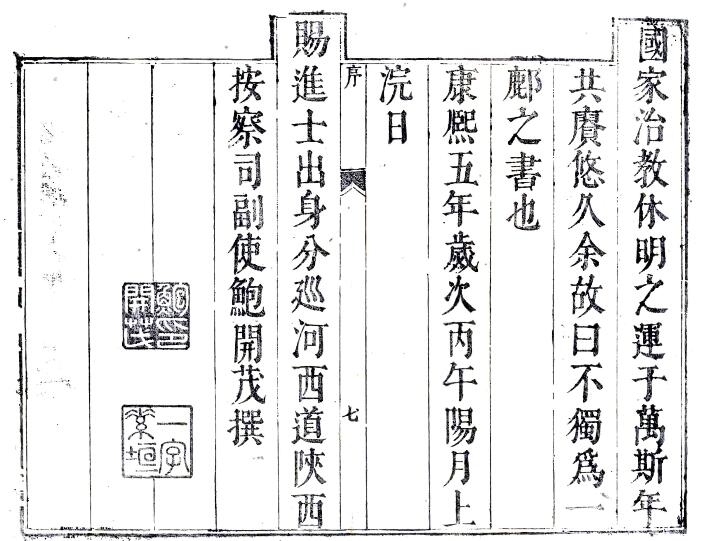 國家治教休明之運于萬斯年
共賡悠久余故曰不獨為一
鄜之書也
康熙五年歲次丙午陽月上
浣日
序
七
賜進士出身分巡河西道陜西
按察司副使鮑開茂撰
鮑印開茂
一字素垣